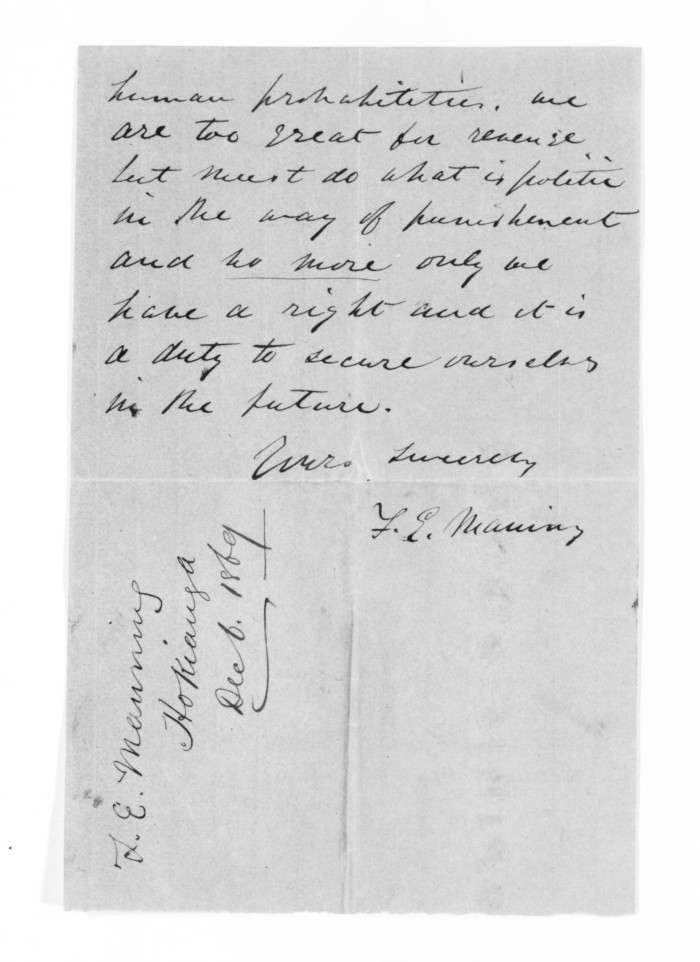 human probabilities. we
are too great for revenge
but must do what is politic
in the way of punishment
and no more only we
have a right and it is
a duty to secure ourselves
in the future.
Yours Sincerely
F. E. Maning
F. E. Manning
Hokianga
Dec 6. 1869